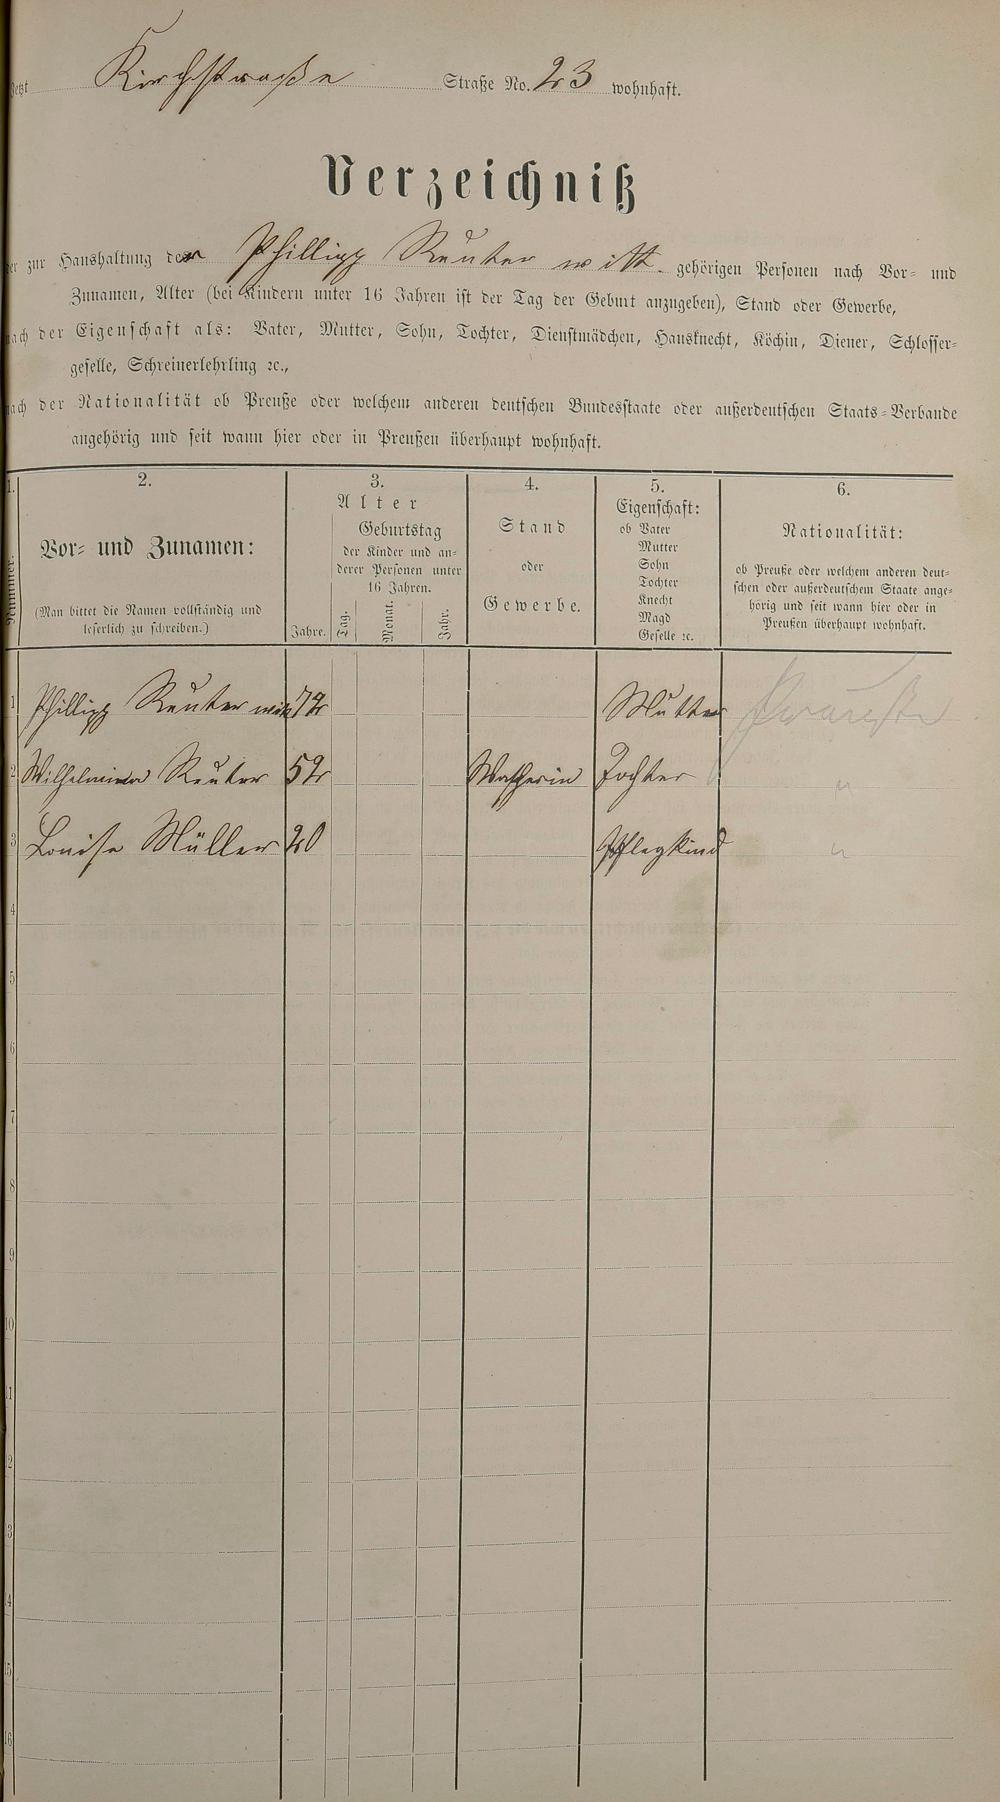 Jetzt Kirchstraße Straße No. 23 wohnhaft.
Verzeichniß
der zur Haushaltung der Phillipp Reuter witt. gehörigen Personen nach Vor- und
Zunamen, Alter (bei Kindern unter 16 Jahren ist der Tag der Geburt anzugeben), Stand oder Gewerbe,
nach der Eigenschaft als: Vater, Mutter, Sohn, Tochter, Dienstmädchen, Hausknecht, Köchin, Diener, Schlosser-
geselle, Schreinerlehrling ꝛc.,
nach der Nationalität ob Preuße oder welchem anderen deutschen Bundesstaate oder außerdeutschen Staats-Verbande
angehörig und seit wann hier oder in Preußen überhaupt wohnhaft.
1. 2. 3. 4. 5. 6.
Nummer.
Vor- und Zunamen:
(Man bittet die Namen vollständig und
leserlich zu schreiben.)
Alter
Jahre.
Geburtstag
der Kinder und an-
derer Personen unter
16 Jahren.
Tag. Monat. Jahr.
Stand
oder
Gewerbe.
Eigenschaft:
ob Vater
Mutter
Sohn
Tochter
Knecht
Magd
Geselle ꝛc.
Nationalität:
ob Preuße oder welchem anderen deut-
schen oder außerdeutschem Staate ange-
hörig und seit wann hier oder in
Preußen überhaupt wohnhaft.
1 Phillipp Reuter witt 74 Mutter Preuße
2 Wilhelmina Reuter 52 Tochter "
3 Louise Müller 20 Pflegkind "
4
5
6
7
8
9
10
11
12
13
14
15
16